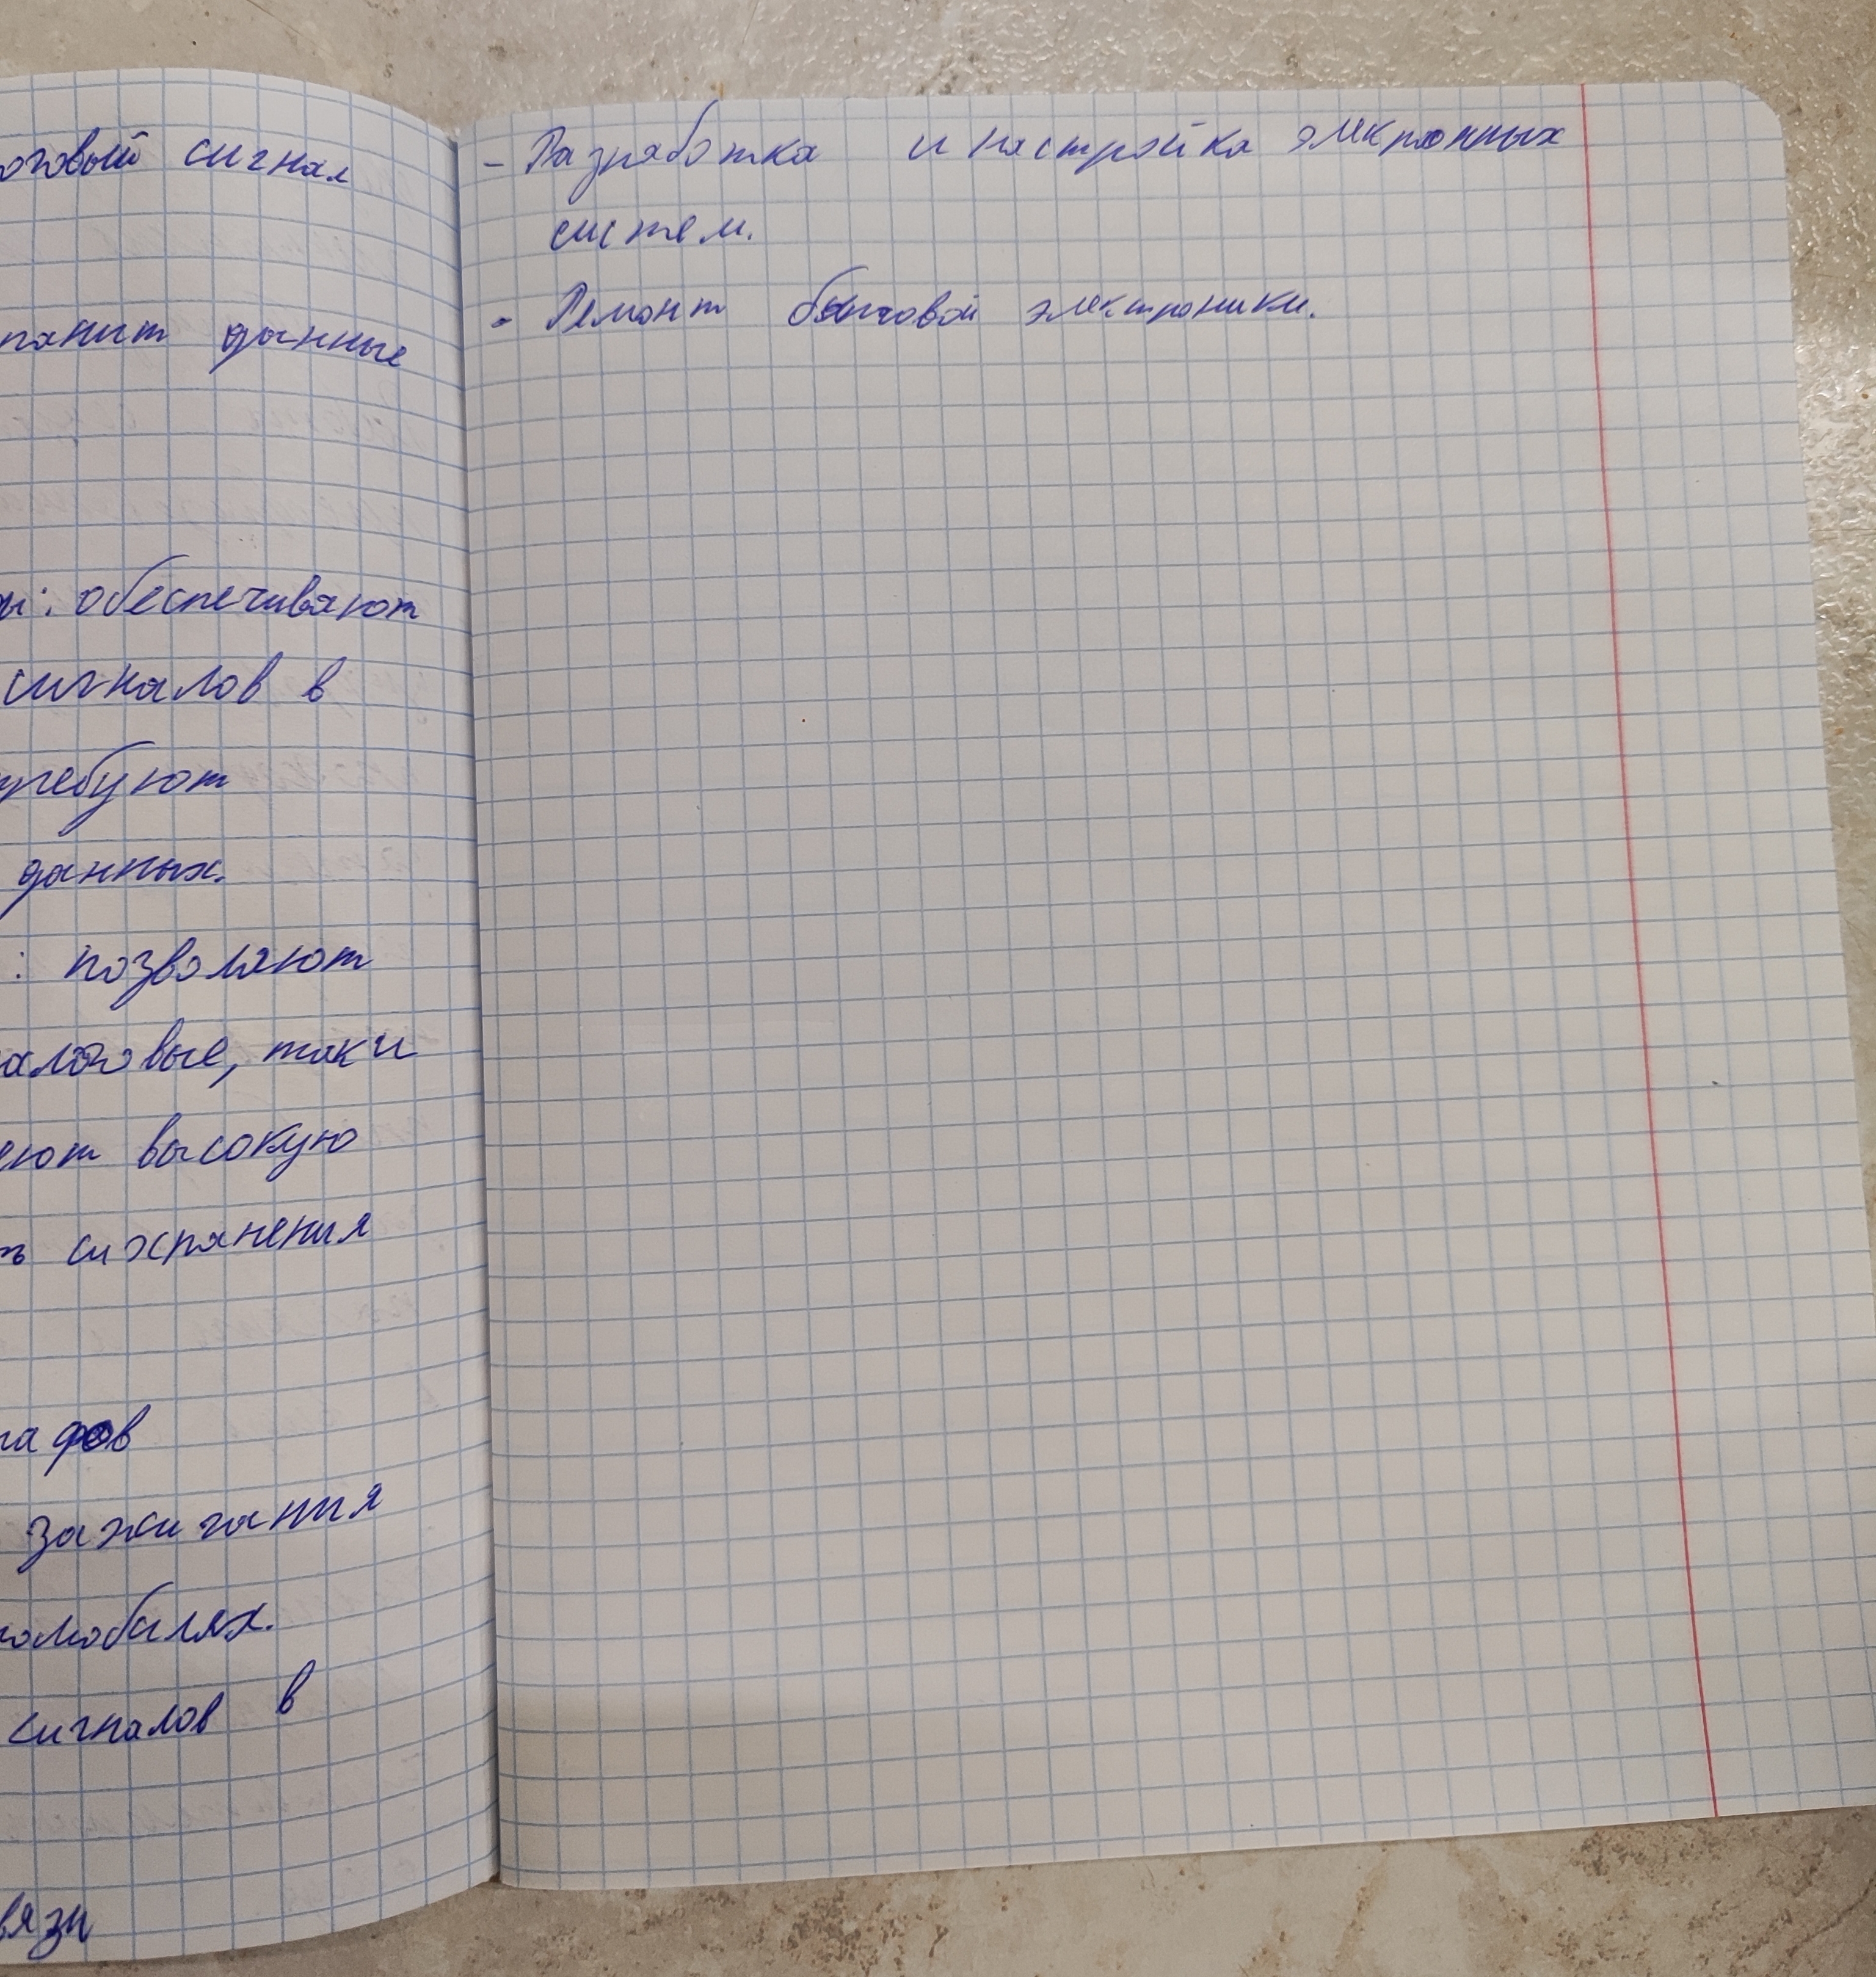 оговый сигнал
ранит данные
ы: обеспечивают
сигналов в
требуют
данных.
: позволяют
алоговые, так и
еют высокую
ь сихранения
афов
зажигания
омобилях.
сигналов в
вязи
- Разработка и настройка элекронных
систем.
- Ремонт бытовой электроники.